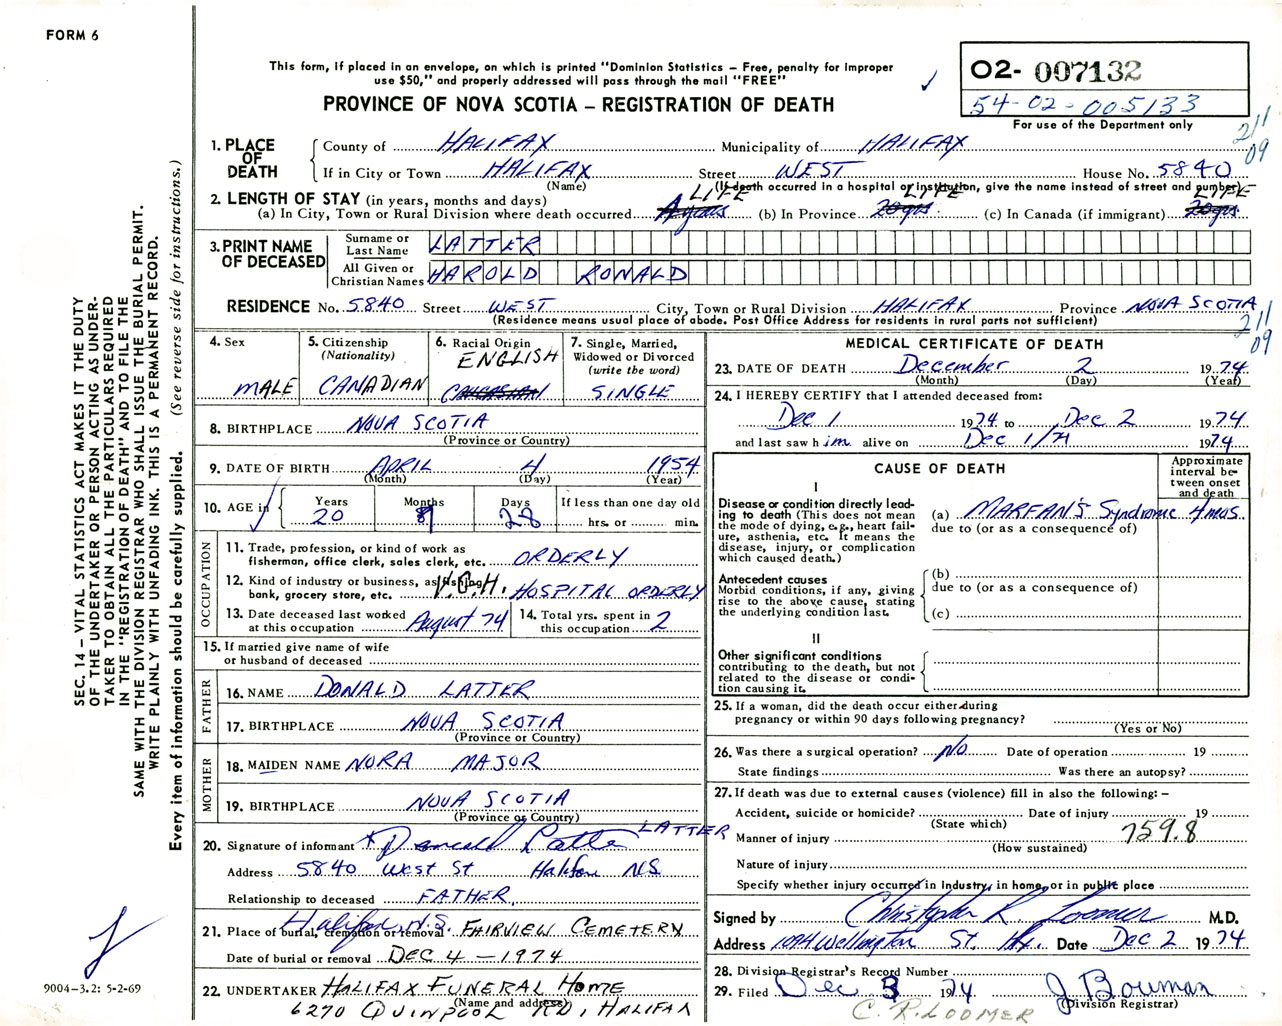 FORM 6
This form, if placed in an envelope, on which is printed "Dominion Statistics – Free, penalty for improper
use $50," and properly addressed will pass through the mail "FREE"
PROVINCE OF NOVA SCOTIA – REGISTRATION OF DEATH
02- 007132
54-02-005133
For use of the Department only
211
09
1. PLACE OF DEATH
County of HALIFAX Municipality of HALIFAX
If in City or Town HALIFAX Street WEST House No. 5840
(Name) (If death occurred in a hospital or institution, give the name instead of street and number)
2. LENGTH OF STAY (in years, months and days) LIFE LIFE LIFE
(a) In City, Town or Rural Division where death occurred (b) In Province 20 yrs. (c) In Canada (if immigrant) 20 yrs
3. PRINT NAME OF DECEASED
Surname or Last Name LATTER
All Given or Christian Names HAROLD RONALD
RESIDENCE No. 5840 Street WEST City, Town or Rural Division HALIFAX Province NOVA SCOTIA
(Residence means usual place of abode. Post Office Address for residents in rural parts not sufficient)
211
09
4. Sex MALE
5. Citizenship (Nationality) CANADIAN
6. Racial Origin ENGLISH CAUCASIAN
7. Single, Married, Widowed or Divorced (write the word) SINGLE
8. BIRTHPLACE NOVA SCOTIA
(Province or Country)
9. DATE OF BIRTH APRIL 4 1954
(Month) (Day) (Year)
10. AGE in Years 20 Months Days 28 If less than one day old hrs. or min.
OCCUPATION
11. Trade, profession, or kind of work as fisherman, office clerk, sales clerk, etc. ORDERLY
12. Kind of industry or business, as fishing, bank, grocery store, etc. V.G.H. HOSPITAL ORDERLY
13. Date deceased last worked at this occupation August 74
14. Total yrs. spent in this occupation 2
15. If married give name of wife or husband of deceased
FATHER
16. NAME DONALD LATTER
17. BIRTHPLACE NOVA SCOTIA
(Province or Country)
MOTHER
18. MAIDEN NAME NORA MAJOR
19. BIRTHPLACE NOVA SCOTIA
(Province or Country)
20. Signature of informant x Donald Latter LATTER
Address 5840 West St Halifax N.S.
Relationship to deceased FATHER
Halifax, N.S.
21. Place of burial, cremation or removal FAIRVIEW CEMETERY
Date of burial or removal DEC 4 – 1974
22. UNDERTAKER HALIFAX FUNERAL HOME
(Name and address)
6270 QUINPOOL RD, HALIFAX
MEDICAL CERTIFICATE OF DEATH
23. DATE OF DEATH December 2 1974
(Month) (Day) (Year)
24. I HEREBY CERTIFY that I attended deceased from:
Dec 1 1974 to Dec 2 1974
and last saw him alive on Dec 1/74 1974
CAUSE OF DEATH
Approximate interval between onset and death
I
Disease or condition directly leading to death (This does not mean the mode of dying, e.g., heart failure, asthenia, etc. It means the disease, injury, or complication which caused death.)
(a) MARFAN'S Syndrome 4 mos.
due to (or as a consequence of)
Antecedent causes
Morbid conditions, if any, giving rise to the above cause, stating the underlying condition last.
(b)
due to (or as a consequence of)
(c)
II
Other significant conditions
contributing to the death, but not related to the disease or condition causing it.
25. If a woman, did the death occur either during pregnancy or within 90 days following pregnancy?
(Yes or No)
26. Was there a surgical operation? No Date of operation 19
State findings Was there an autopsy?
27. If death was due to external causes (violence) fill in also the following: –
Accident, suicide or homicide? Date of injury 19
(State which)
Manner of injury 759.8
(How sustained)
Nature of injury
Specify whether injury occurred in Industry, in home, or in public place
Signed by Christopher R. Loomer M.D.
Address Wellington St. Hx. Date Dec 2 1974
28. Division Registrar's Record Number
29. Filed Dec 3 1974 J Bowman
(Division Registrar)
C. R. LOOMER
SEC. 14 – VITAL STATISTICS ACT MAKES IT THE DUTY
OF THE UNDERTAKER OR PERSON ACTING AS UNDER-
TAKER TO OBTAIN ALL THE PARTICULARS REQUIRED
IN THE "REGISTRATION OF DEATH" AND TO FILE THE
SAME WITH THE DIVISION REGISTRAR WHO SHALL ISSUE THE BURIAL PERMIT.
WRITE PLAINLY WITH UNFADING INK. THIS IS A PERMANENT RECORD.
Every item of information should be carefully supplied. (See reverse side for instructions.)
9004-3.2: 5-2-69